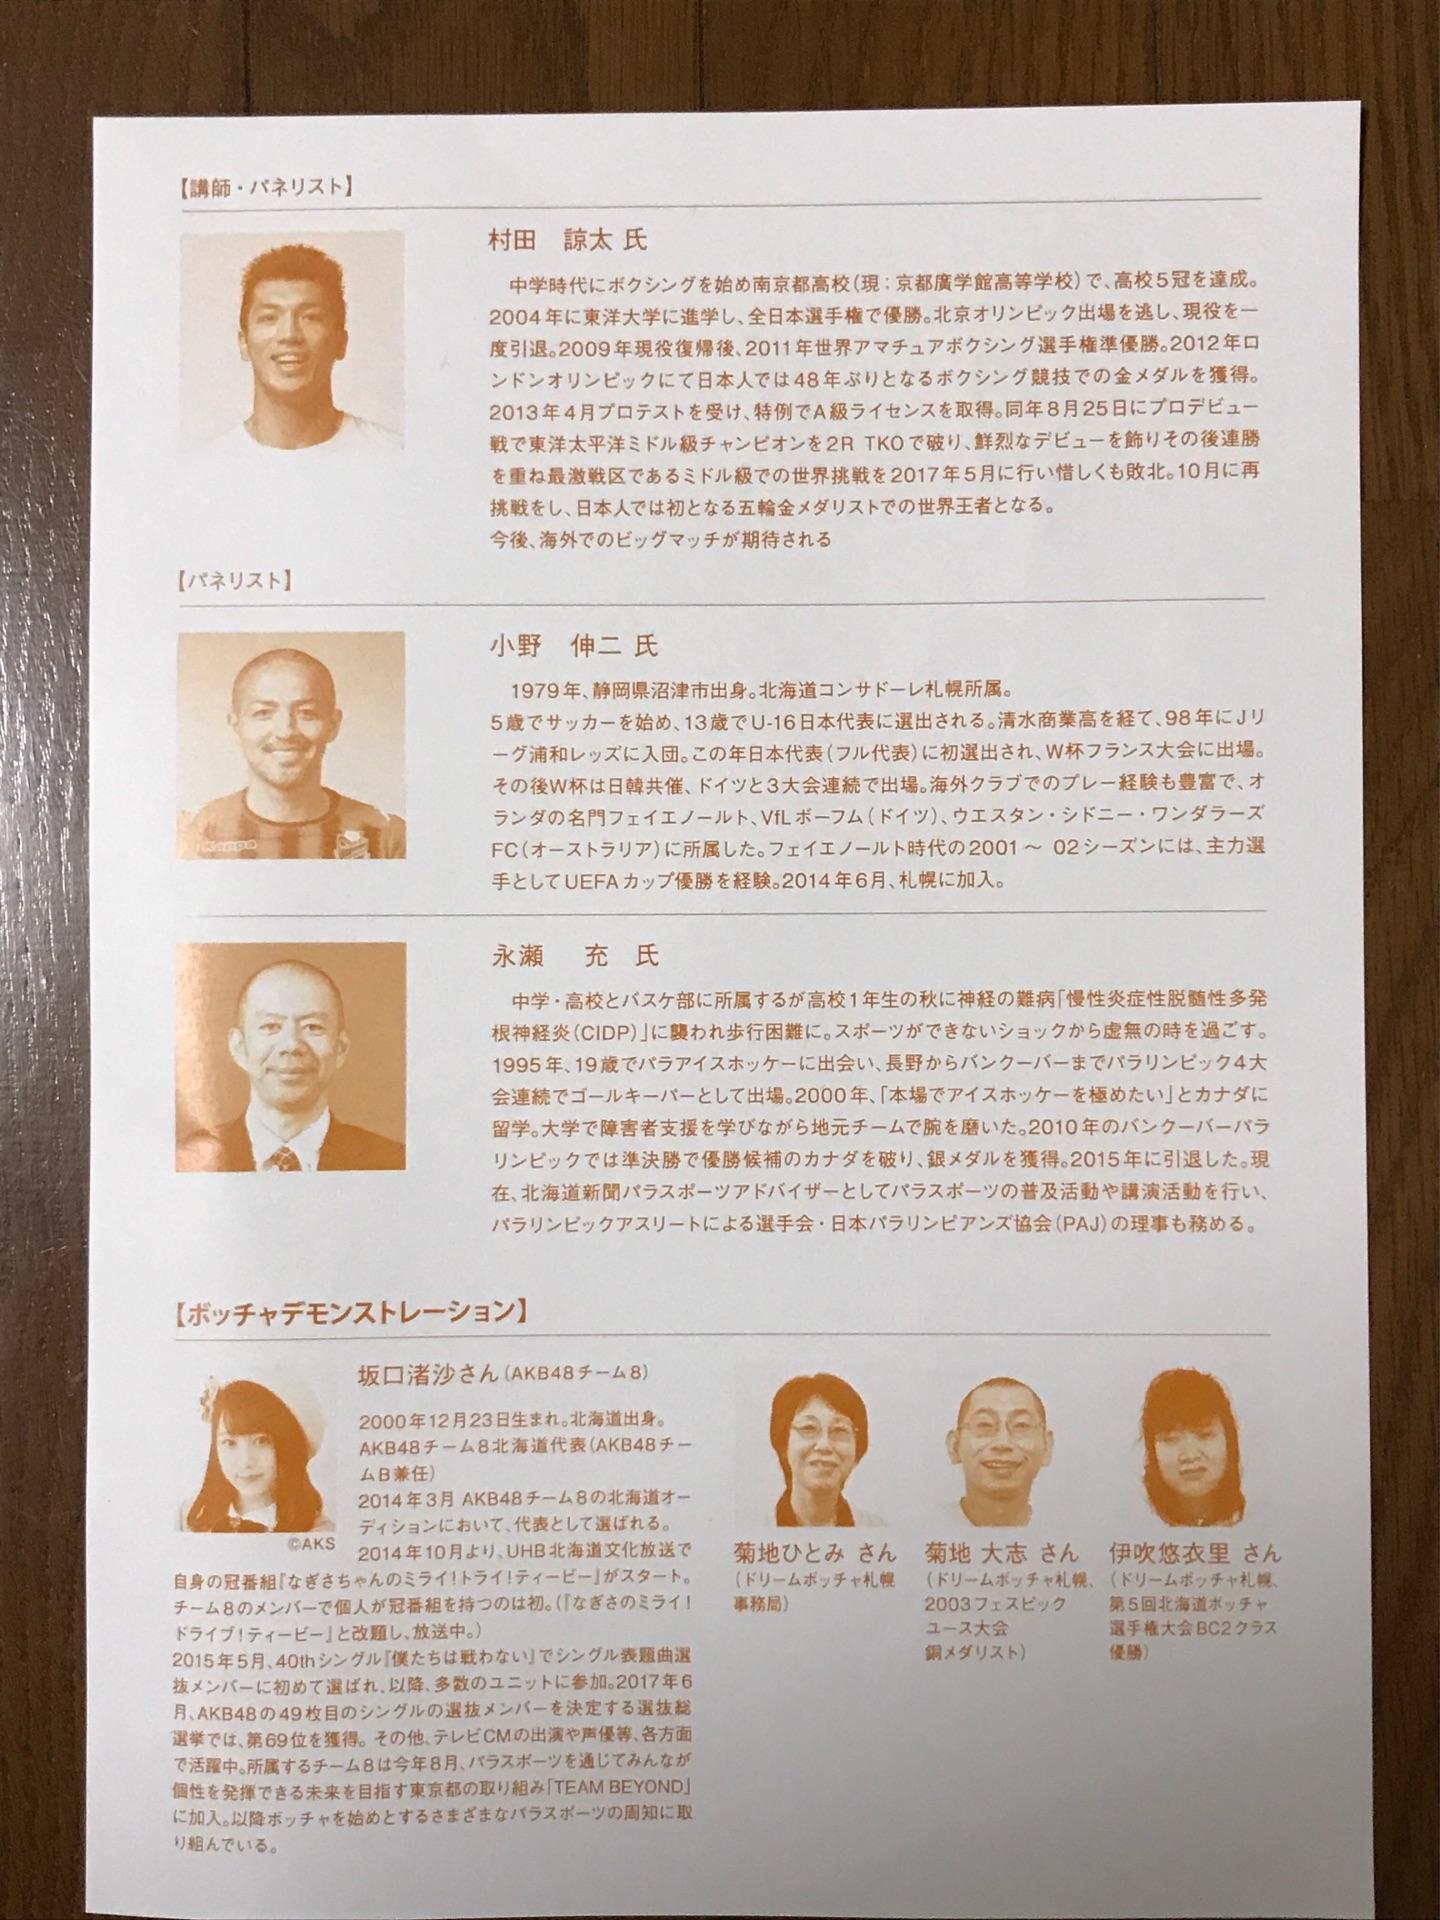 【講師・パネリスト】
村田　諒太 氏
中学時代にボクシングを始め南京都高校(現:京都廣学館高等学校)で、高校5冠を達成。
2004年に東洋大学に進学し、全日本選手権で優勝。北京オリンピック出場を逃し、現役を一
度引退。2009年現役復帰後、2011年世界アマチュアボクシング選手権準優勝。2012年ロ
ンドンオリンピックにて日本人では48年ぶりとなるボクシング競技での金メダルを獲得。
2013年4月プロテストを受け、特例でA級ライセンスを取得。同年8月25日にプロデビュー
戦で東洋太平洋ミドル級チャンピオンを2R TKOで破り、鮮烈なデビューを飾りその後連勝
を重ね最激戦区であるミドル級での世界挑戦を2017年5月に行い惜しくも敗北。10月に再
挑戦をし、日本人では初となる五輪金メダリストでの世界王者となる。
今後、海外でのビッグマッチが期待される
【パネリスト】
小野　伸二 氏
1979年、静岡県沼津市出身。北海道コンサドーレ札幌所属。
5歳でサッカーを始め、13歳でU-16日本代表に選出される。清水商業高を経て、98年にJリ
ーグ浦和レッズに入団。この年日本代表(フル代表)に初選出され、W杯フランス大会に出場。
その後W杯は日韓共催、ドイツと3大会連続で出場。海外クラブでのプレー経験も豊富で、オ
ランダの名門フェイエノールト、VfLボーフム(ドイツ)、ウエスタン・シドニー・ワンダラーズ
FC(オーストラリア)に所属した。フェイエノールト時代の2001～02シーズンには、主力選
手としてUEFAカップ優勝を経験。2014年6月、札幌に加入。
Kappa
永瀬　充　氏
中学・高校とバスケ部に所属するが高校1年生の秋に神経の難病「慢性炎症性脱髄性多発
根神経炎(CIDP)」に襲われ歩行困難に。スポーツができないショックから虚無の時を過ごす。
1995年、19歳でパラアイスホッケーに出会い、長野からバンクーバーまでパラリンピック4大
会連続でゴールキーパーとして出場。2000年、「本場でアイスホッケーを極めたい」とカナダに
留学。大学で障害者支援を学びながら地元チームで腕を磨いた。2010年のバンクーバーパラ
リンピックでは準決勝で優勝候補のカナダを破り、銀メダルを獲得。2015年に引退した。現
在、北海道新聞パラスポーツアドバイザーとしてパラスポーツの普及活動や講演活動を行い、
パラリンピックアスリートによる選手会・日本パラリンピアンズ協会(PAJ)の理事も務める。
【ボッチャデモンストレーション】
坂口渚沙さん(AKB48チーム8)
2000年12月23日生まれ。北海道出身。
AKB48チーム8北海道代表(AKB48チー
ムB兼任)
2014年3月 AKB48チーム8の北海道オー
ディションにおいて、代表として選ばれる。
©AKS
2014年10月より、UHB北海道文化放送で
自身の冠番組『なぎさちゃんのミライ!トライ!ティービー』がスタート。
チーム8のメンバーで個人が冠番組を持つのは初。(『なぎさのミライ!
ドライブ!ティービー』と改題し、放送中。)
2015年5月、40thシングル『僕たちは戦わない』でシングル表題曲選
抜メンバーに初めて選ばれ、以降、多数のユニットに参加。2017年6
月、AKB48の49枚目のシングルの選抜メンバーを決定する選抜総
選挙では、第69位を獲得。その他、テレビCMの出演や声優等、各方面
で活躍中。所属するチーム8は今年8月、パラスポーツを通じてみんなが
個性を発揮できる未来を目指す東京都の取り組み「TEAM BEYOND」
に加入。以降ボッチャを始めとするさまざまなパラスポーツの周知に取
り組んでいる。
菊地ひとみ さん
(ドリームボッチャ札幌
事務局)
菊地 大志 さん
(ドリームボッチャ札幌、
2003フェスピック
ユース大会
銅メダリスト)
伊吹悠衣里 さん
(ドリームボッチャ札幌、
第5回北海道ボッチャ
選手権大会BC2クラス
優勝)